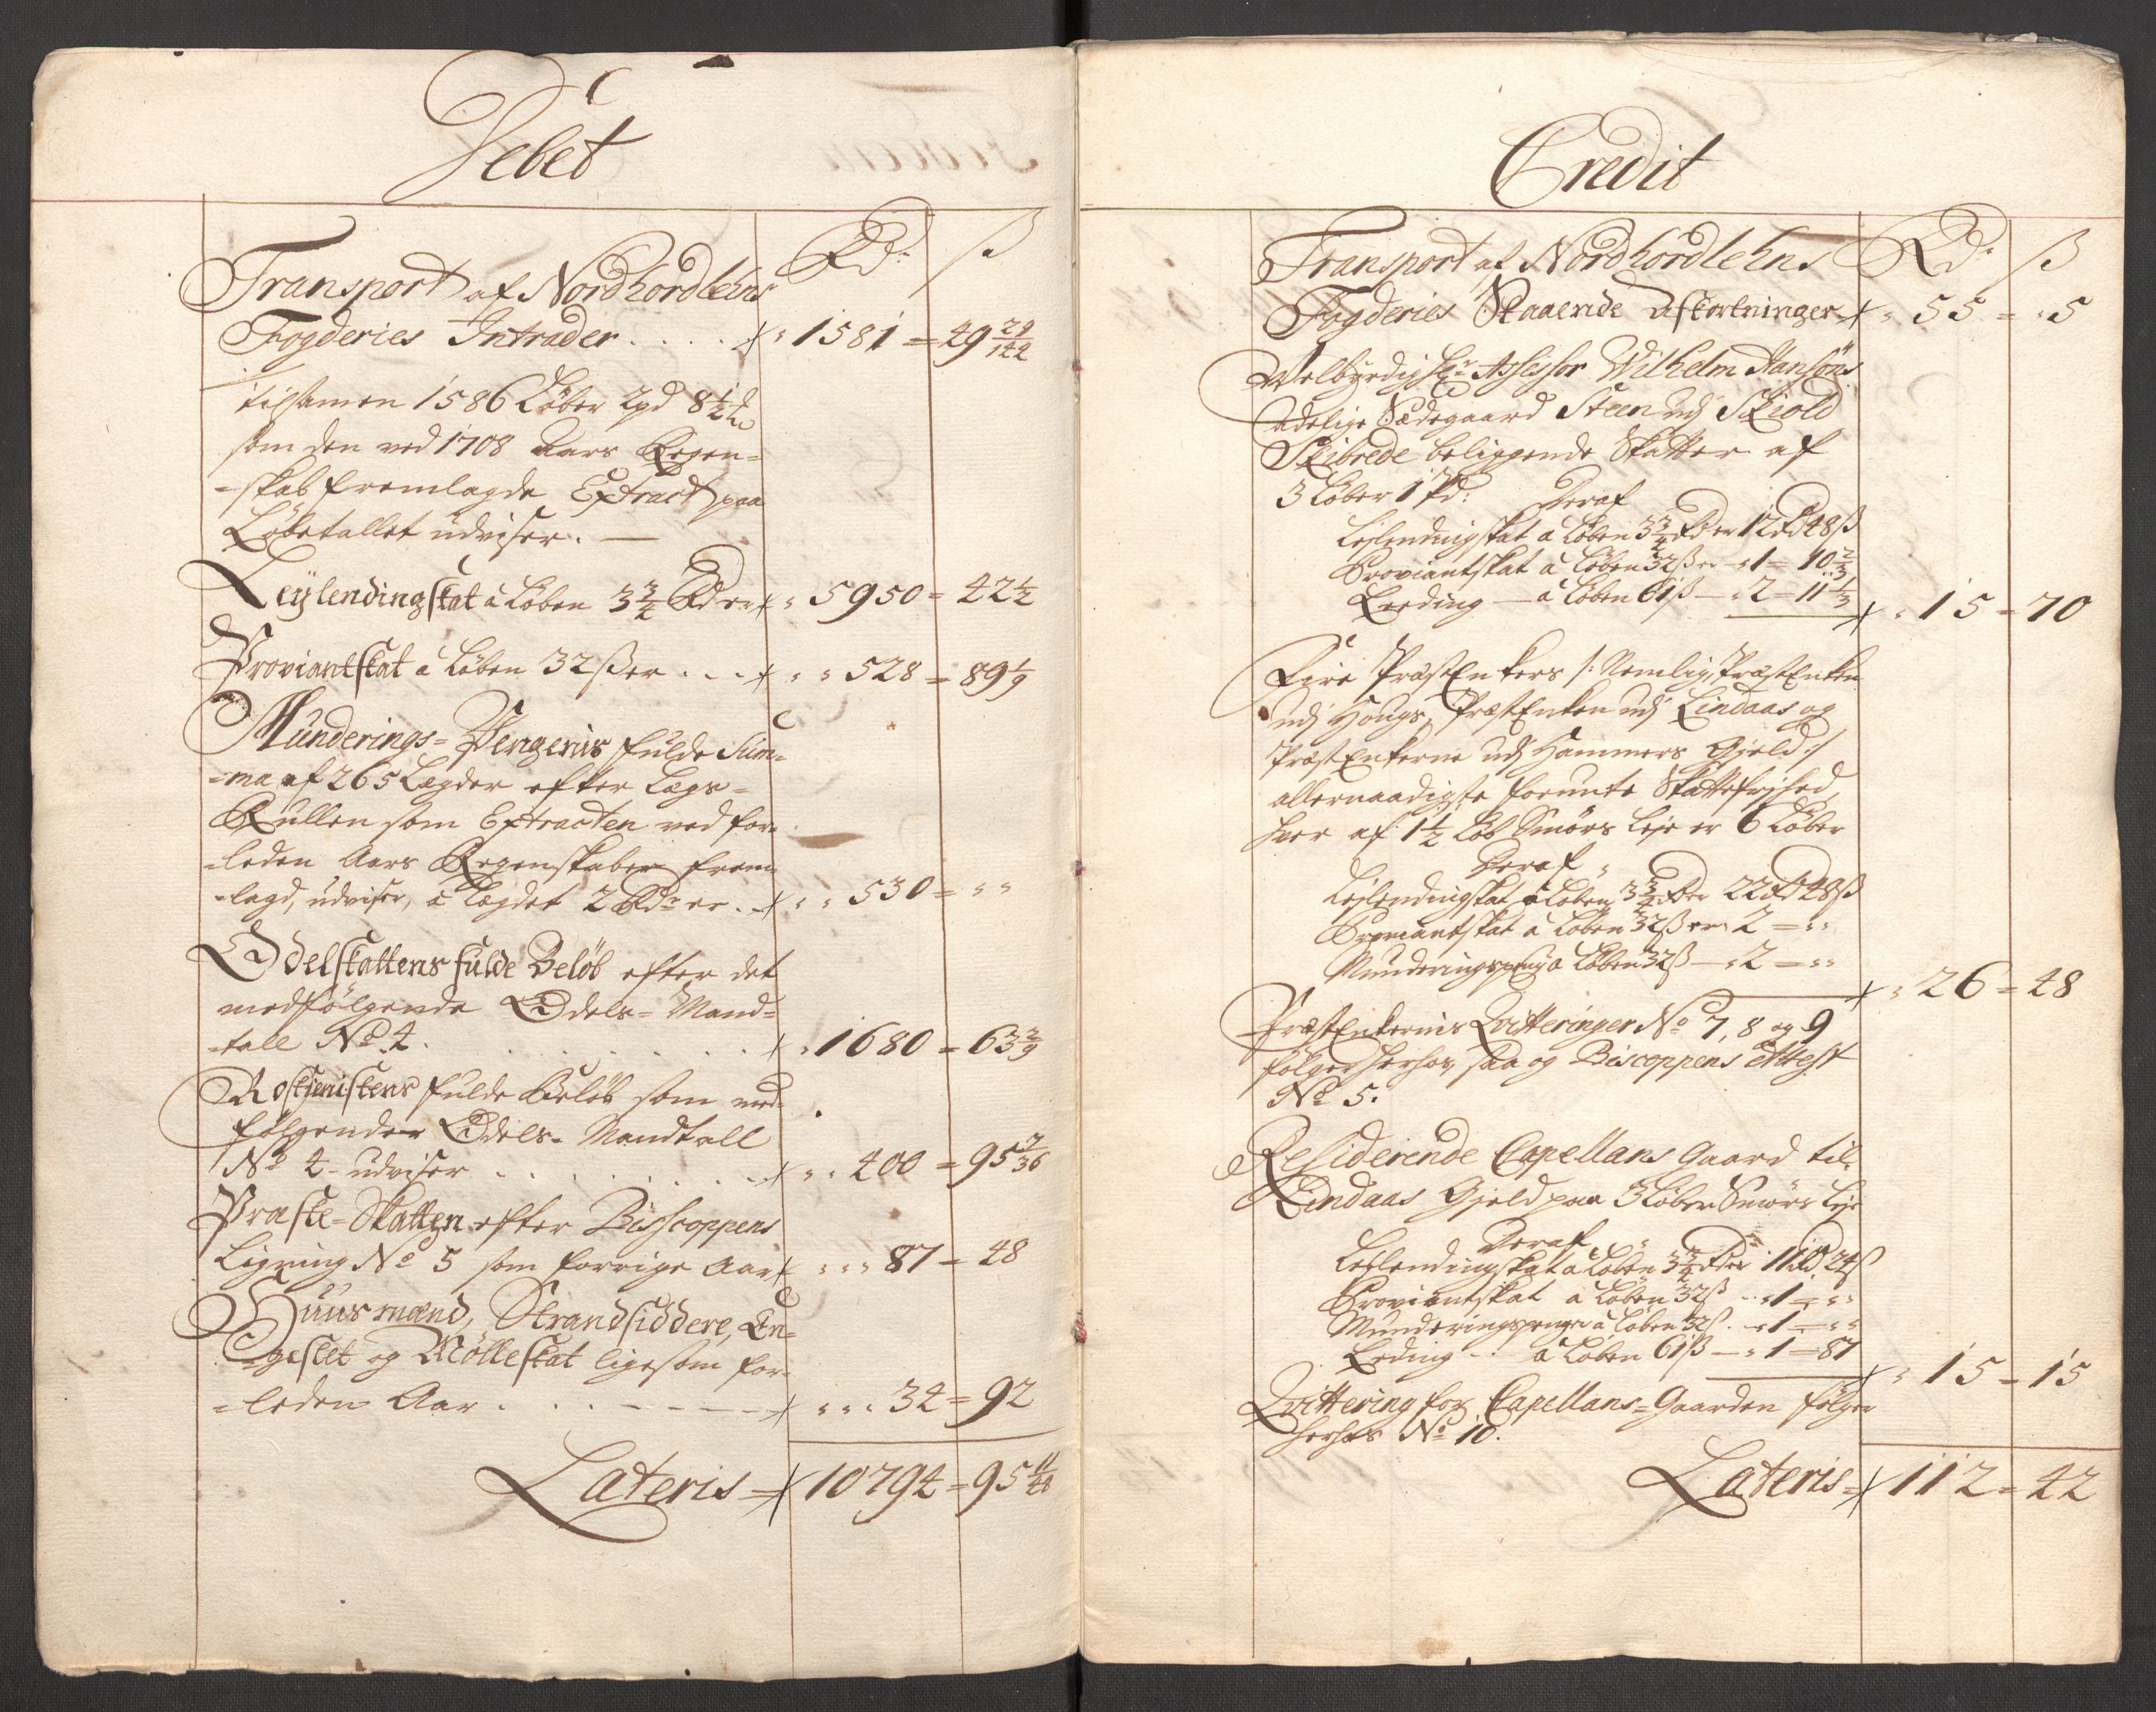 Debet
Rdr ß
Transport af Nordhordlehns
Fogderies Intrader . . . . 1581 = 49 29/144
tilsamen 1586 Løber 2 pd 8 1/2
som den ved 1708 Aars Regen=
=skab fremlagde Extract paa
Løbetallet udviser. —
Leylendingskat à Løben 3 3/4 Rdr er 5950 = 42 1/2
Proviantskat à Løben 32 ß er . . . 528 = 89 1/9
Munderings=Pengenis fulde Sum=
=ma af 265 Lægder efter Lægs=
Rullen som Extracten ved for=
=leden Aars Regenskaber frem=
=lagd, udviser, à Lægdet 2 Rdr er . 530 = " "
Odelskattens fulde Beløb efter det
medfølgende Odels=Mand=
=tall No 4. . . . . . . 1680 = 63 2/9
Rostjenistens fulde Beløb som med=
følgender Odels=Mandtall
No 4 udviser . . . . . . 400 = 95 7/36
Præste=Skatten efter Bisscoppens
Ligning No 5 som forrige Aar 87 = 48
Huusmænd, Strandsiddere, En=
=geslet og Mølleskat ligesom for=
=leden Aar . . . — — — 34 = 92
Lateris 10794 = 95 11/48
Credit
Transport af Nordhordlehns Rdr ß
Fogderies Staaende Afkortninger 55 = 5
Welbyrdig Hr Assessor Wilhelm Hansøns
Adelige Sædegaard Steen udj Skiold
Skibrede beliggende Skatter af
3 Løber 1 pd: Deraf
Leylendingskat à Løben 3 3/4 Rdr er 12 Rd 48 ß
Proviantskat à Løben 32 ß er 1 = 10 2/3
Leeding — à Løben 61 ß — 2 = 11 1/3
15 = 70
Fire PræstEnkers /: Nemlig, PræstEnken
udj Hougs, PræstEnken udj Lindaas og
PræstEnkerne udj Hammers Gjeld :/
allernaadigste forunte Skattefrihed,
hver af 1 1/2 Løb Smørs Leje er 6 Løber
Deraf
Leylendingskat à Løben 3 3/4 Rdr er 22 Rd 48 ß
Proviantskat à Løben 32 ß er 2 = " "
Munderingspeng à Løben 32 ß — 2 = " "
26 = 48
PræstEnkernis Qvitteringer No 7, 8 og 9
følger herhos, saa og Biscoppens Attest
No 5.
Residerende Capellans Gaard til
Lindaas Gjeld paa 3 Løber Smørs Leje
Deraf
Leylendingskat à Løben 3 3/4 Rdr er 11 Rd 24 ß
Proviantskat à Løben 32 ß . . 1 = " "
Munderingspenge à Løben 32 ß . 1 = " "
Leding . . à Løben 61 ß — 1 = 87
15 = 15
Qvittering for Capellans=Gaarden følger
herhos No 10.
Lateris 112 = 42